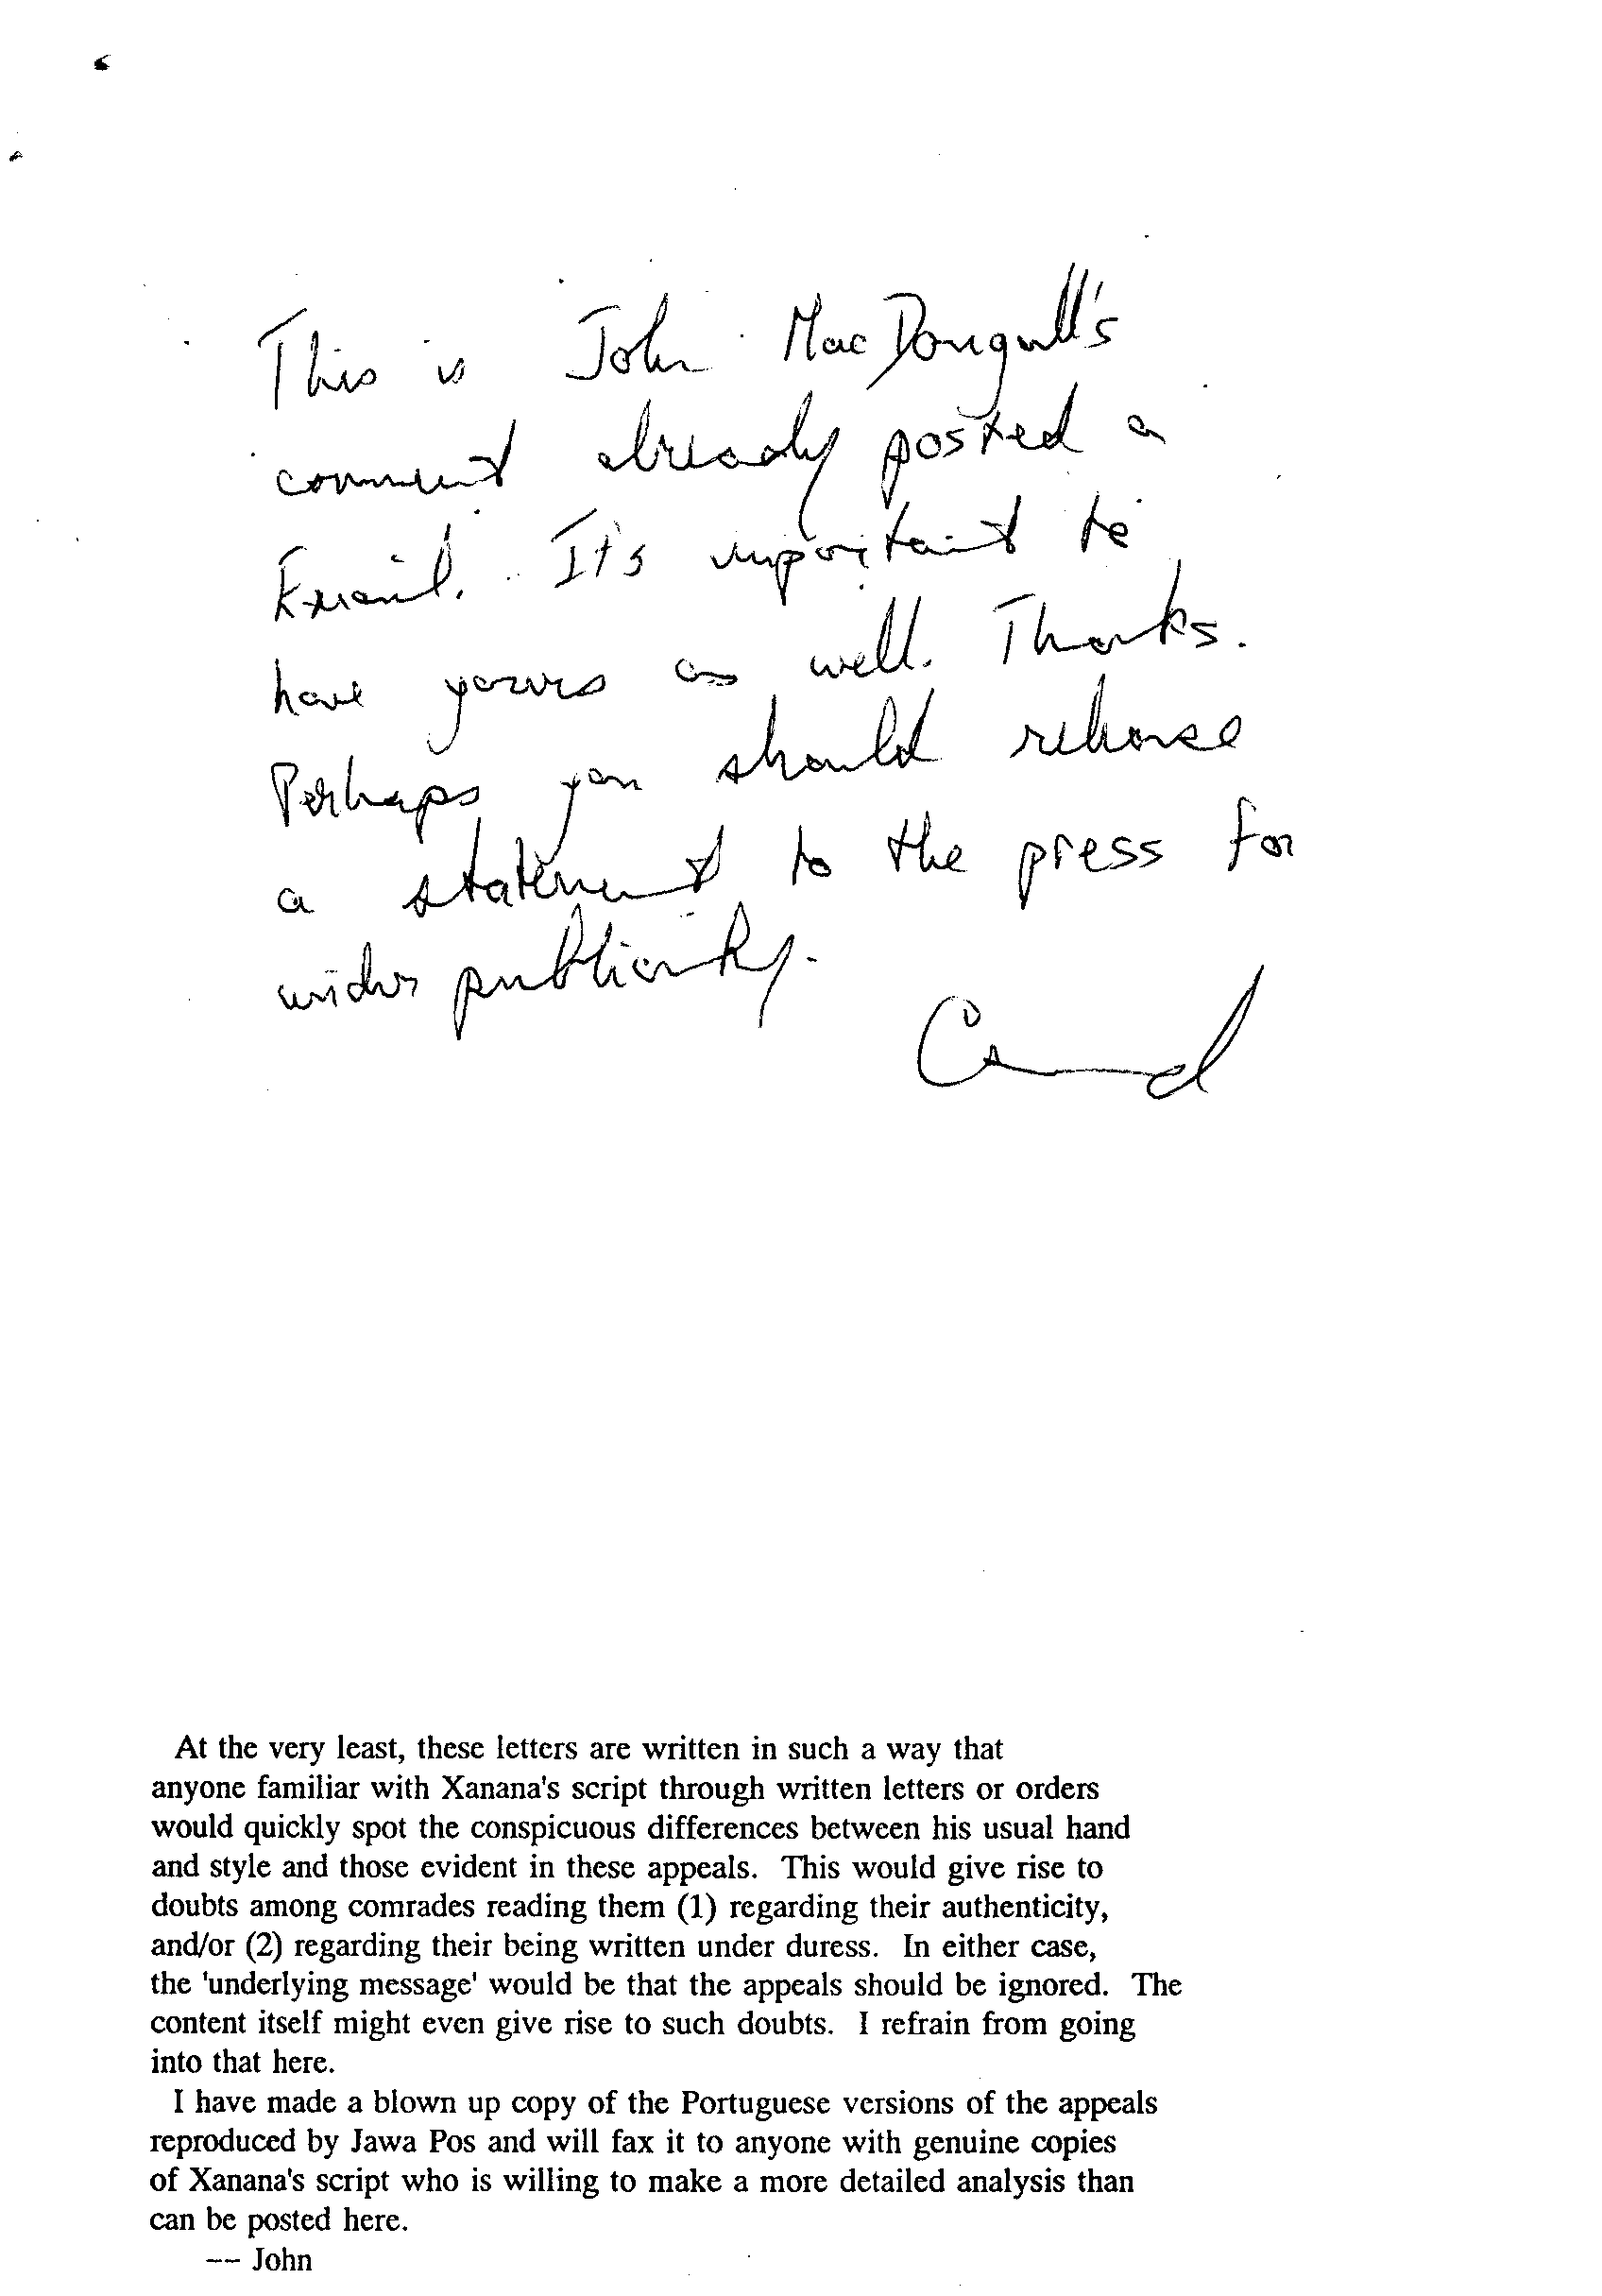 This is John MacDougall's
comment already posted a
Email. It's important to
have yours as well. Thanks.
Perhaps you should release
a statement to the press for
wider publicity.
At the very least, these letters are written in such a way that
anyone familiar with Xanana's script through written letters or orders
would quickly spot the conspicuous differences between his usual hand
and style and those evident in these appeals. This would give rise to
doubts among comrades reading them (1) regarding their authenticity,
and/or (2) regarding their being written under duress. In either case,
the 'underlying message' would be that the appeals should be ignored. The
content itself might even give rise to such doubts. I refrain from going
into that here.
I have made a blown up copy of the Portuguese versions of the appeals
reproduced by Jawa Pos and will fax it to anyone with genuine copies
of Xanana's script who is willing to make a more detailed analysis than
can be posted here.
-- John